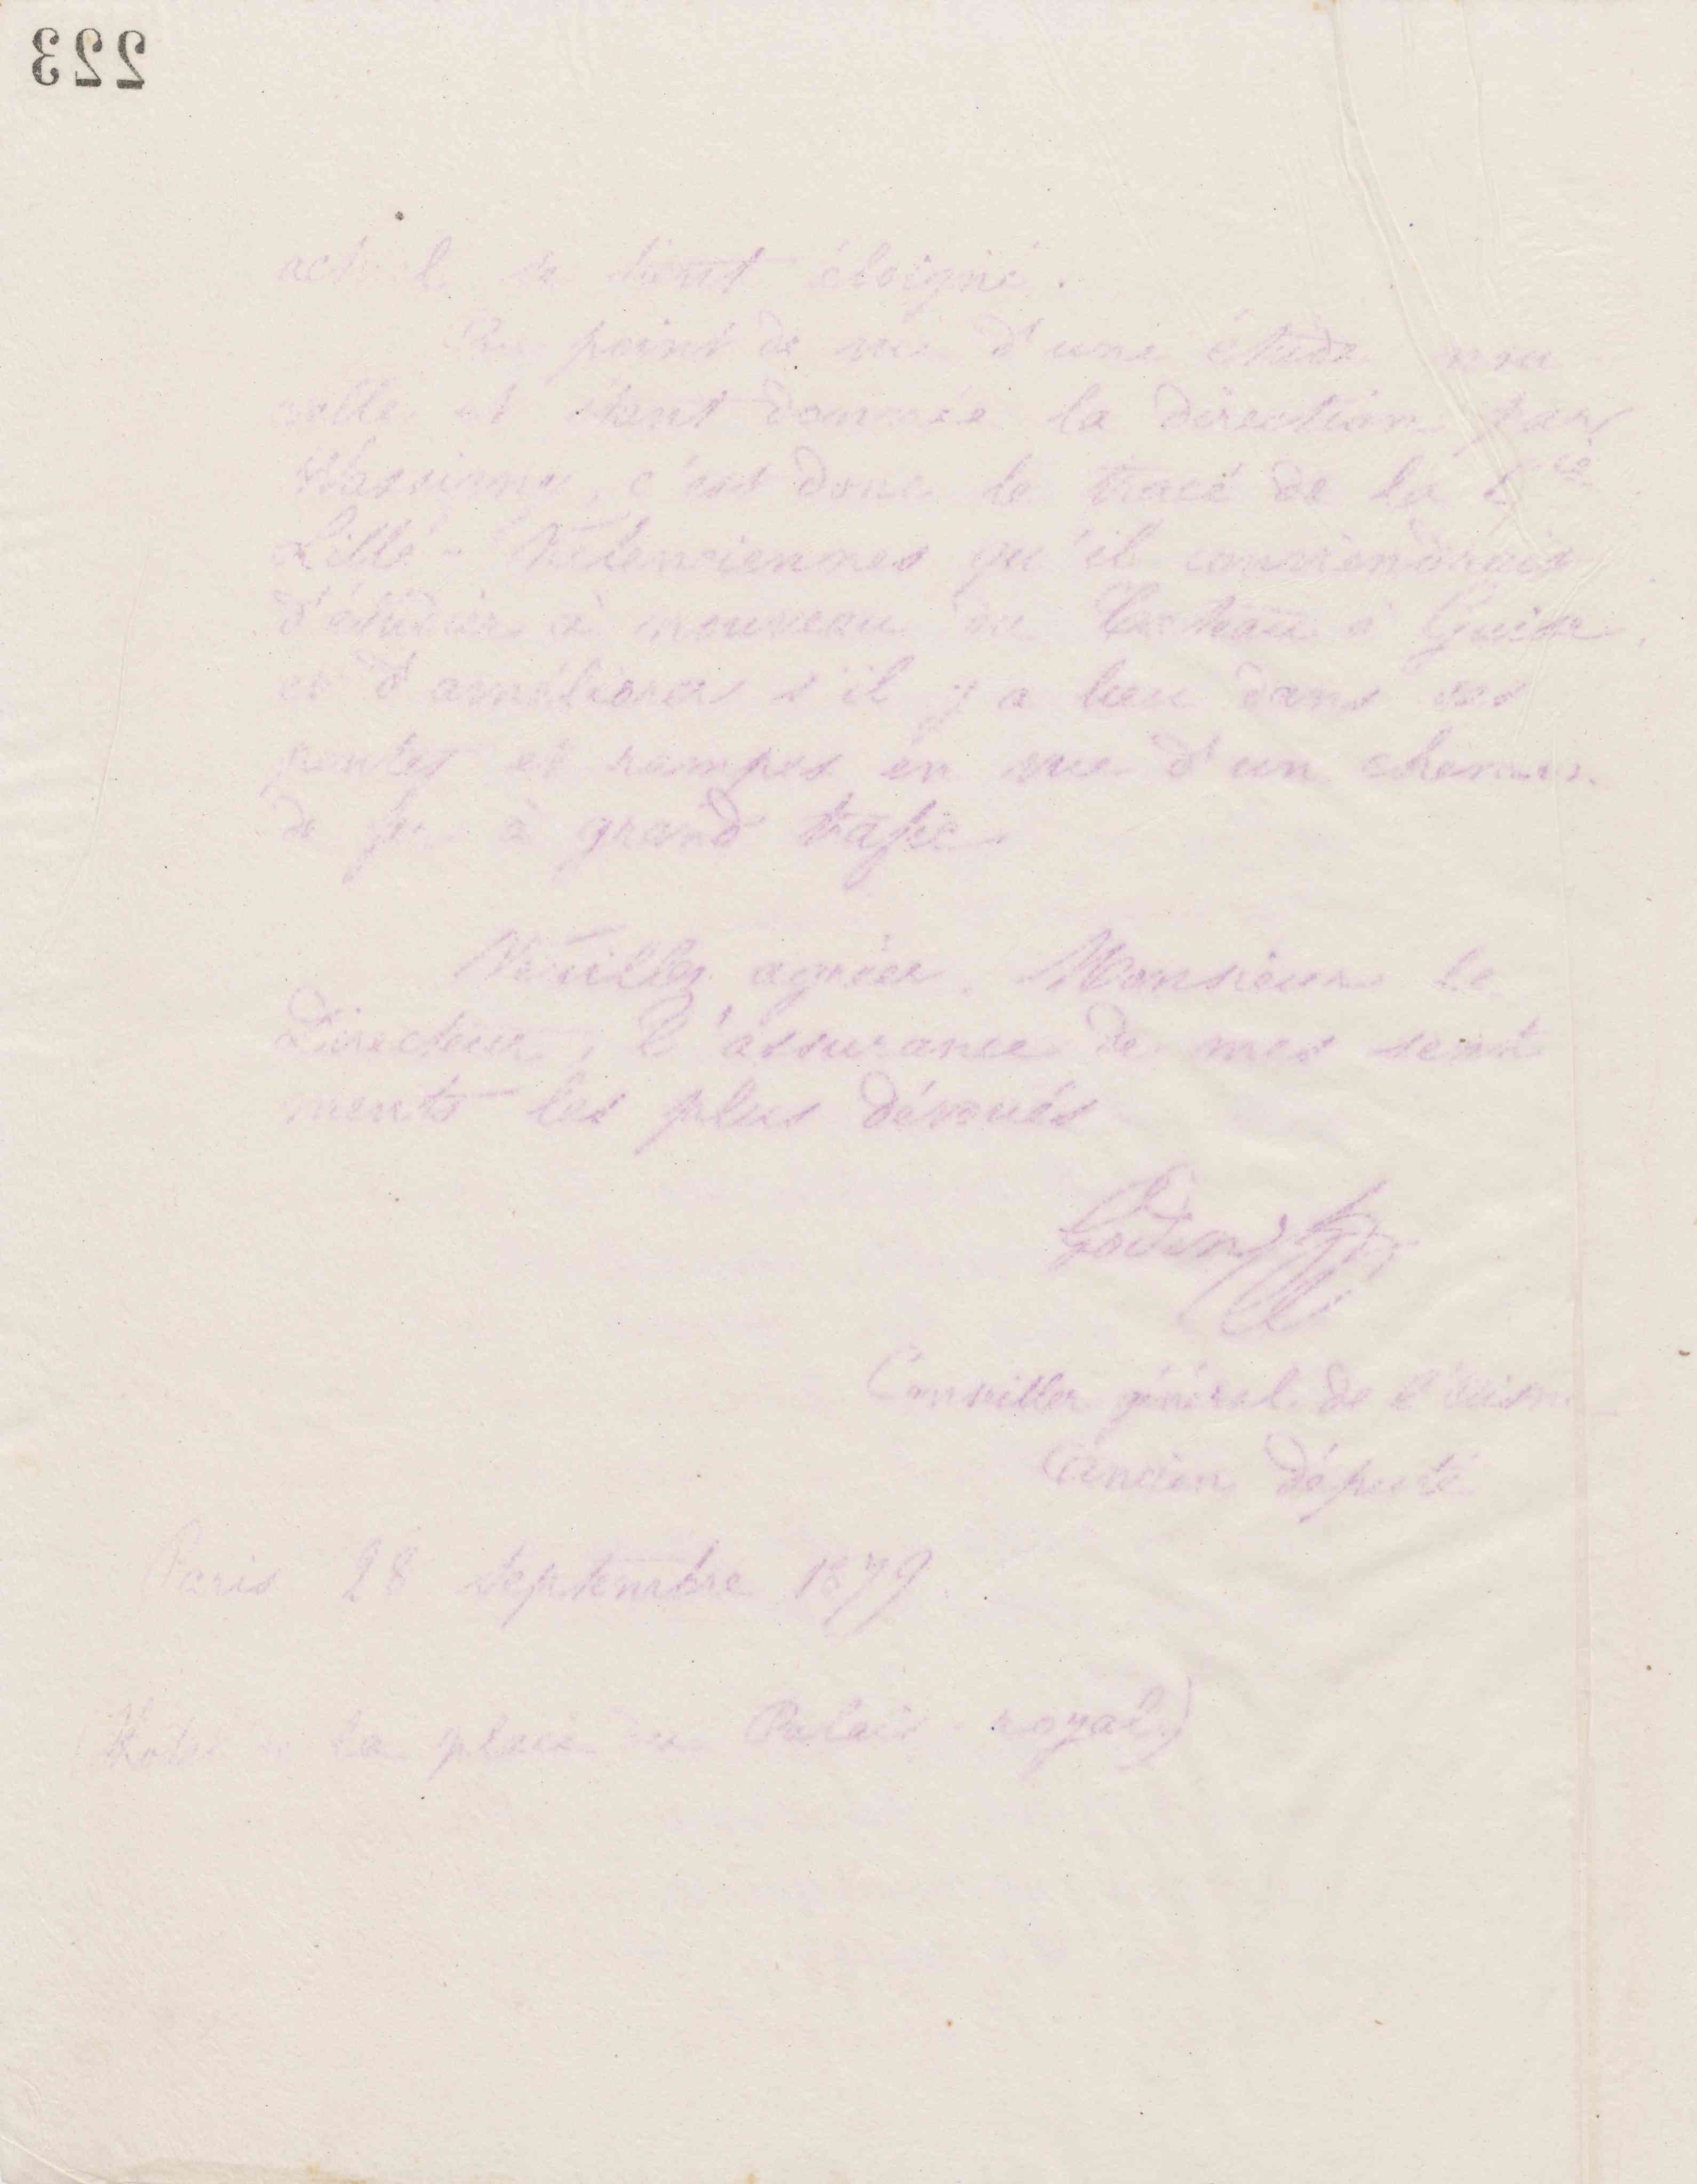 223
actuel se tient éloigné.
Au point de vue d'une étude nou
velle et étant donnée la direction par
Wassigny, c'est donc le tracé de la Cie
Lille-Valenciennes qu'il conviendrait
d'étudier à nouveau du Cateau à Guise,
et d'améliorer s'il y a lieu dans ses
pentes et rampes en vue d'un chemin
de fer à grand trafic.
Veuillez agréer, Monsieur le
Directeur, l'assurance de mes senti
ments les plus dévoués
Godin
Conseiller général de l'Aisne
Ancien député
Paris 28 septembre 1879.
(Hotel de la place du Palais-royal)